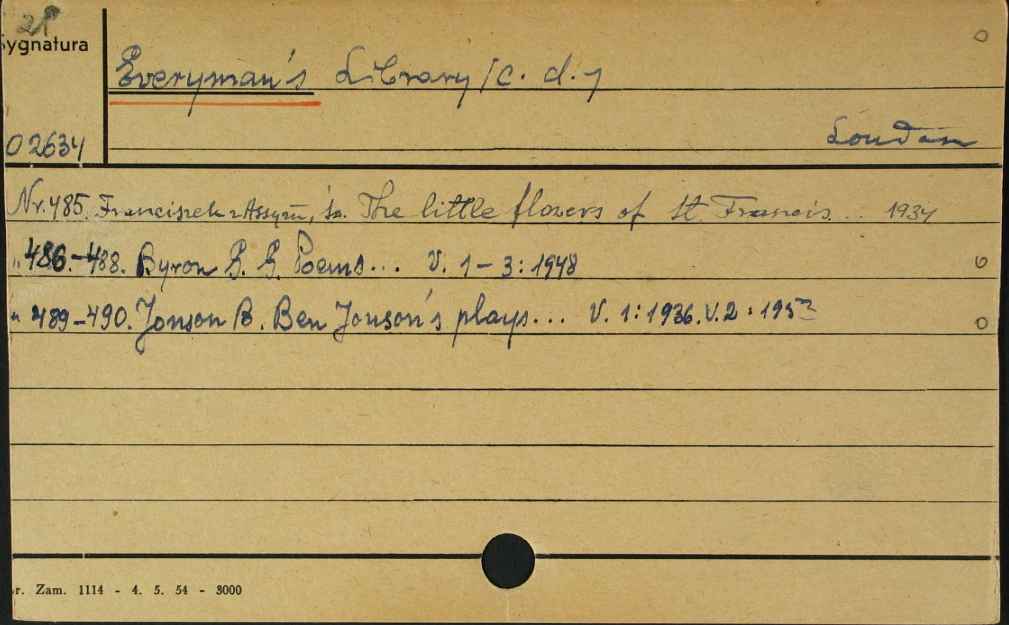 Sygnatura
Everyman's Library /c. d./
02634
London
Nr. 485. Franciszek z Assyżu, św. The little flowers of St. Francis... 1934
„ 486.-488. Byron G. G. Poems... V. 1-3: 1948
„ 489-490. Jonson B. Ben Jonson's plays... V. 1: 1936. V. 2:
r. Zam. 1114 - 4. 5. 54 - 3000